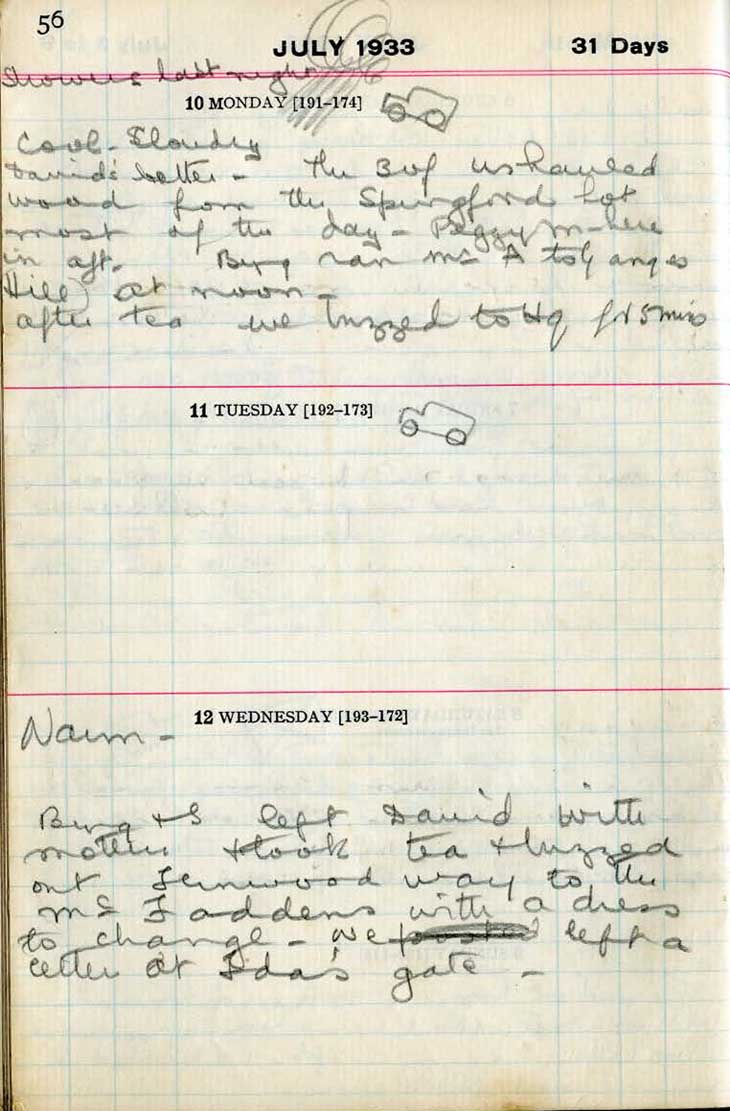 56
JULY 1933
31 Days
Showers last night
10 MONDAY [191–174]
Cool - Cloudy
David's better - The
wood from the Springford lot
most of the day - Peggy M - here
in aft. Byng ran Mc A to
Hill at noon -
after tea we buzzed to Hq for 5 mins
11 TUESDAY [192–173]
12 WEDNESDAY [193–172]
Warm -
Byng + I left David with
mother + took tea + buzzed
out Fernwood way to the
McFaddens with a dress
to change - we posted left a
letter at Ida's gate -